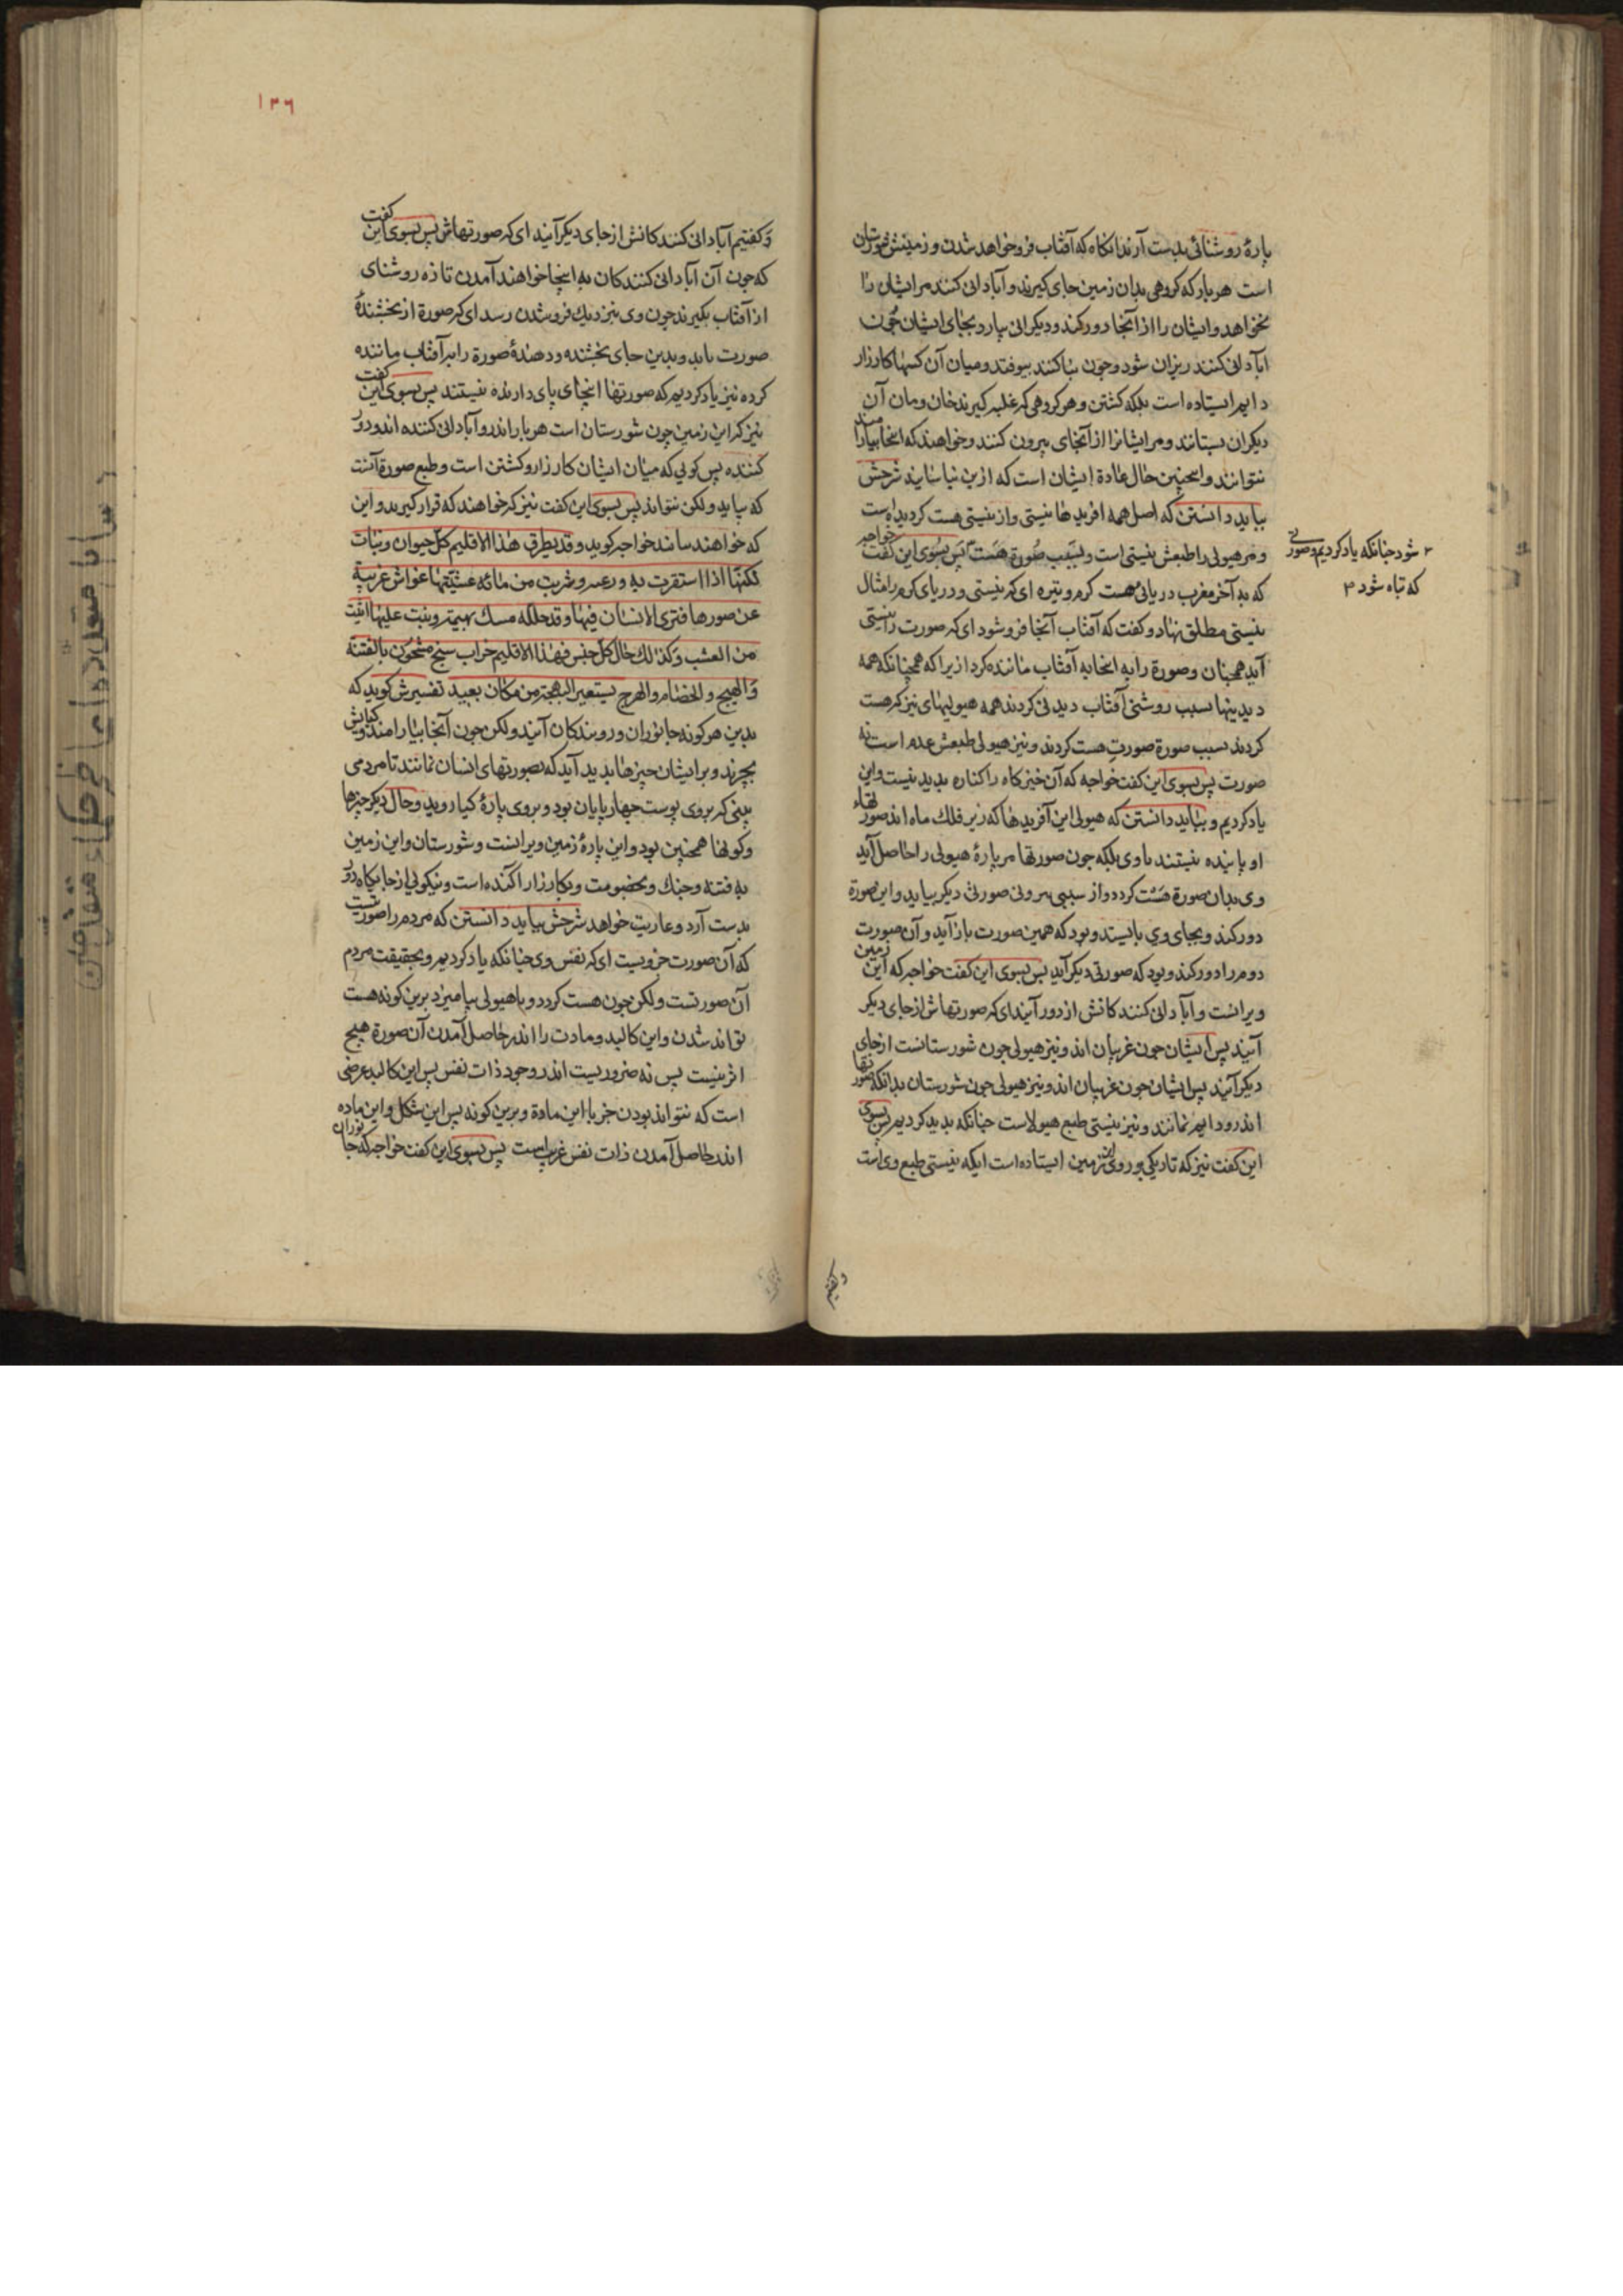 پارهٔ روشنائی بدست آرند انکاه که آفتاب فرو خواهد شدن و زمینش شورستان
است هر بار که کروهی بدان زمین جای کیرند و آبادانی کنند مر ایشان را
نخواهد و ایشان را از آنجا دور کند و دیکرانی بیارد بجای ایشان چون
آبادانی کنند ریزان شود و چون بنا کنند بیوفتد و میان آن کسها کارزار
دایم ایستاده است بلکه کشتن و هر کروهی که غلبه کیرند خان و مان آن
دیکران بستانند و مر ایشانرا از آنجای بیرون کنند و خواهند که انجا بیارامند
نتوانند و اینچنین حال عادة ایشان است که ازین نیاسایند شرحش
بباید دانستن که اصل همه افریدها نیستی و از نیستی هست کردیده است
و مر هیولی را طبعش نیستی است و بسبب صورة هست پس بسوی این کفت خواجه
که به آخر مغرب دریائی هست کرم و تیره ای که نیستی و دریای کرم را مثال
نیستی مطلق نهاد و کفت که آفتاب آنجا فرو شود ای که صورت را نیستی
آید همچنان و صورة را به انجا به آفتاب ماننده کرد ازیرا که همچنانکه همه
دیدینها بسبب روشنی آفتاب دیدنی کردند همه هیولیهای نیز که هست
کردند بسبب صورة صورت هست کردند و نیز هیولی طبعش عدم است نه
صورت پس بسوی این کفت خواجه که آن خیزکاه را کناره بدید نیست و این
یاد کردیم و بباید دانستن که هیولی این آفریدها که زیر فلک ماه اند صورتهاء
او پاینده نیستند با وی بلکه چون صورتها مر پارهٔ هیولی را حاصل آید
وی بدان صورة هست کردد و از سببی بیرونی صورتی دیکر بیاید و این صورة
دور کند و بجای وی بایستد و بود که همین صورت باز آید و آن صورت
دوم را دور کند و بود که صورتی دیکر آید پس بسوی این کفت خواجه که این زمین
ویرانست و آبادانی کنندکانش از دور آیند ای که صورتهاش از جای دیکر
آیند پس ایشان چون غریبان اند و نیز هیولی چون شورستانست از جای
دیکر آیند پس ایشان چون غریبان اند و نیز هیولی چون شورستان بدانکه صورتها
اندرو دایم نمانند و نیز نیستی طبع هیولاست چنانکه بدید کردیم پس بسوی
این کفت نیز که تاریکی بر روی این زمین ایستاده است ایکه نیستی طبع وی است
۲ شود چنانکه یاد کردیم و صورتی
که تباه شود ۳
وکفتیم
۱۳۶
وکفتیم آبادانی کنندکانش از جای دیکر آیند ای که صورتهاش پس بسوی این کفت
که چون آن آبادانی کنندکان به اینجا خواهند آمدن تا ذه روشنای
از آفتاب بکیرند چون وی بنزدیک فرو شدن رسد ای که صورة از بخشندهٔ
صورت یابد و بدین جای بخشنده و دهندهٔ صورة را بر آفتاب ماننده
کرده نیز یاد کردیم که صورتها اینجای پای دارنده نیستند پس بسوی این کفت
نیز که این زمین چون شورستان است هر بار اندرو آبادانی کننده اند و دور
کننده پس کوئی که میان ایشان کارزار و کشتن است و طبع صورة آنست
که بپاید ولکن نتواند پس بسوی این کفت نیز که خواهند که قرار کیرند و این
که خواهند ساند خواجه کوید و قد یطرق هذا الاقلیم کل حیوان و نبات
لکنها اذا استقرت به ورعته وشربت من مائه غشیتها غواش غریبة
عن صورها فتری الانسان فیها وقد جلله مسک بهیمة ونبت علیها اثیث
من العشب وکذلک حال کل جنس فهذا الاقلیم خراب سبخ مشحون بالفتنة
والهیج والخصام والهرج یستعیر البهجة من مکان بعید تفسیرش کوید که
بدین هر کونه جانوران و رویندکان آیند ولکن چون آنجا بیارامند و کیایش
بچرند و بر ایشان چیزها بدید آید که بصورتهای انسان نمانند تا مردمی
بینی که بر وی پوست چهارپایان بود و بر وی پارهٔ کیا روید و حال دیکر چیزها
وکونها همچنین بود و این پارهٔ زمین ویرانست و شورستان و این زمین
به فتنه و جنک و بخصومت و بکارزار اکنده است و نیکوئی از جایکاه دور
بدست آرد و عاریت خواهد شرحش بباید دانستن که مردم را صورتیست
که آن صورت خرویست ای که نفس وی چنانکه یاد کردیم و بحقیقت مردم
آن صورتست ولکن چون هست کردد و با هیولی بیامیزد برین کونه هست
تواند شدن و این کالبد و مادت را اندر حاصل آمدن آن صورة هیچ
اثر نیست پس نه ضروریست اندر وجود ذات نفس پس این کالبد عرضی
است که نتواند بودن جز با این مادة و برین کونه پس این شکل و این ماده
اندر حاصل آمدن ذات نفس غریب است پس بسوی این کفت خواجه که جانوران